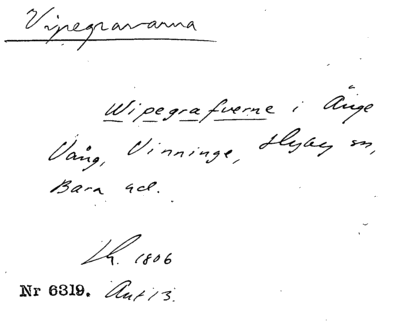 Vipegravarna
Wipegrafverne i Änge
Vång, Vinninge, Hyby sn,
Bara hd.
Lh. 1806
Nr 6319. Akt 13.